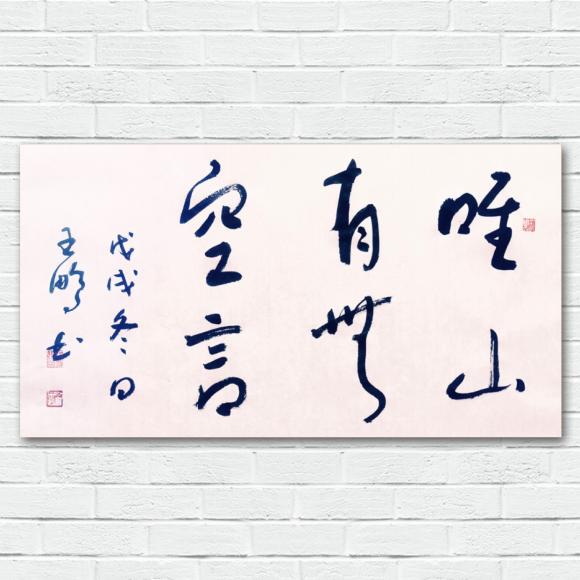 唯山
有無
空言
戊戌冬日
王鵬书